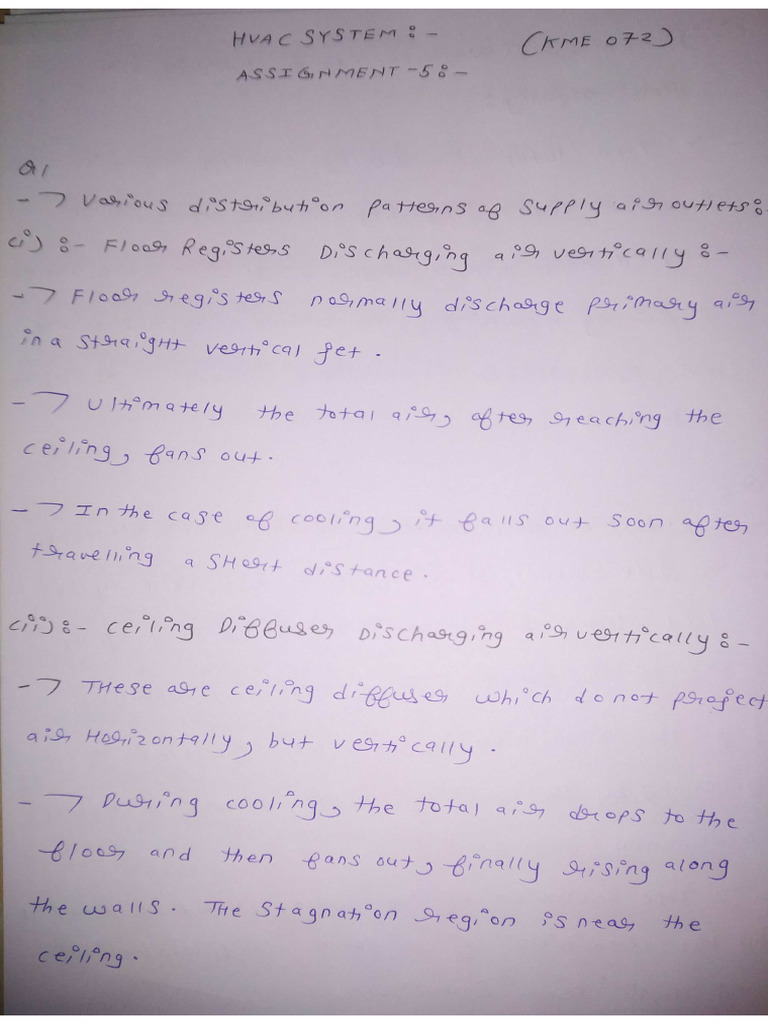 HVAC SYSTEM :- (KME 072)
ASSIGNMENT -5 :-
Q1
-→ Various distribution patterns of supply air outlets:-
(i) :- Floor Registers Discharging air vertically :-
-→ Floor registers normally discharge primary air
in a straight vertical jet.
-→ Ultimately the total air, after reaching the
ceiling, fans out.
-→ In the case of cooling, it falls out soon after
travelling a short distance.
(ii) :- Ceiling Diffuser Discharging air vertically :-
-→ These are ceiling diffuser which do not project
air Horizontally, but vertically.
-→ During cooling, the total air drops to the
floor and then fans out, finally rising along
the walls. The Stagnation region is near the
ceiling.